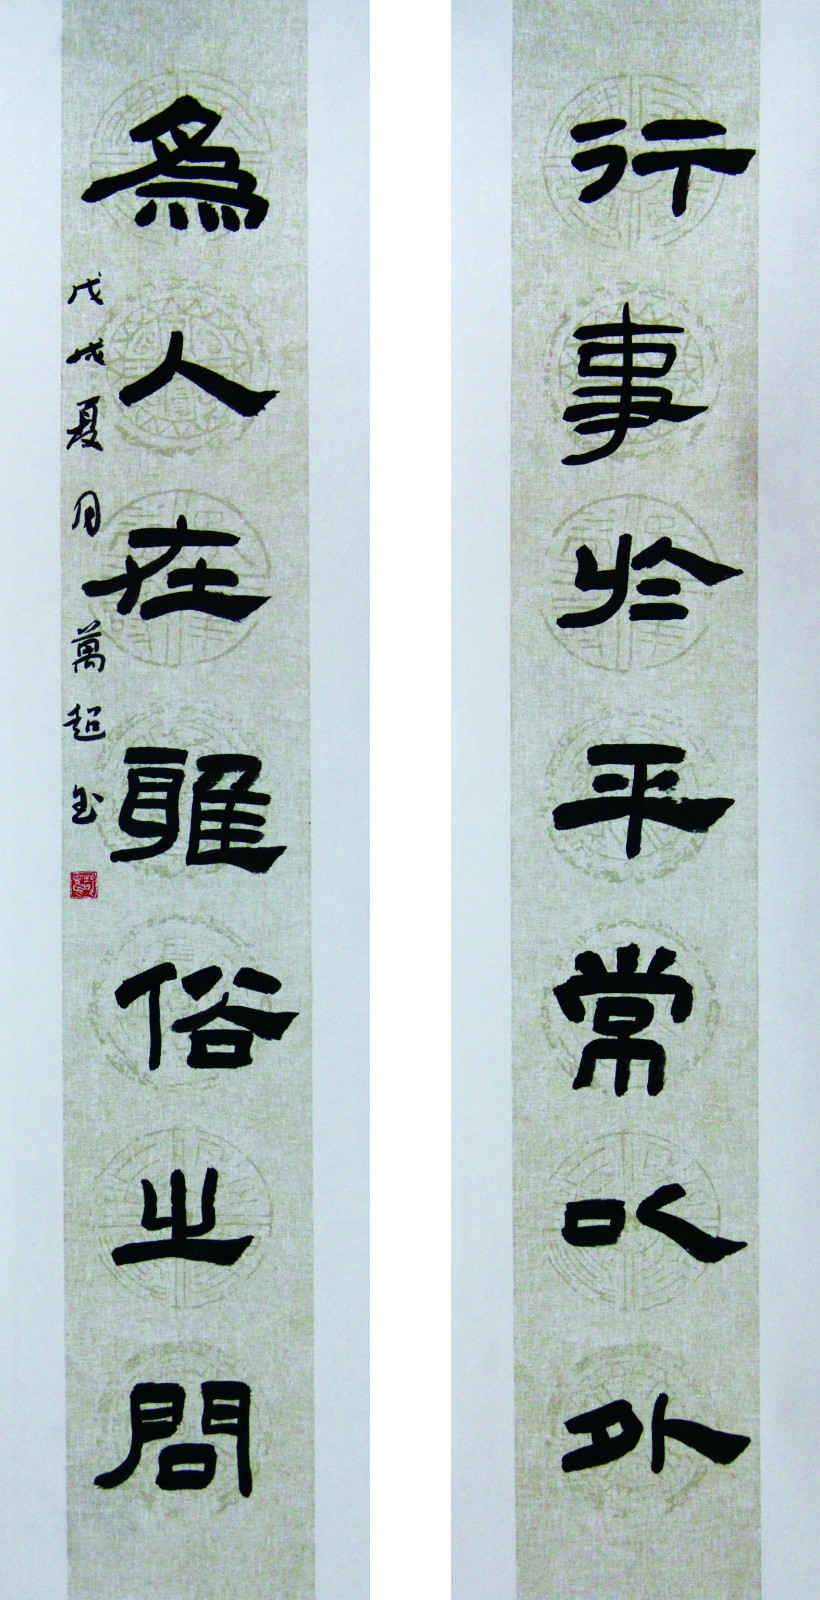 行事於平常以外
為人在雅俗之問
戊戌夏月萬超書